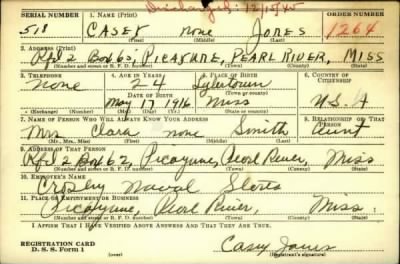 Discharged: 12/15/45
SERIAL NUMBER 1. NAME (Print) ORDER NUMBER
518 CASEY none JONES 1264
(First) (Middle) (Last)
2. ADDRESS (Print)
Rfd 2 Box 63, PICAYUNE, PEARL RIVER, MISS
(Number and street or R. F. D. number) (Town) (County) (State)
3. TELEPHONE 4. AGE IN YEARS 5. PLACE OF BIRTH 6. COUNTRY OF CITIZENSHIP
none 24 Tylertown
DATE OF BIRTH
May 17 1916 Miss U.S.A
(Exchange) (Number) (Mo.) (Day) (Yr.) (State or country)
7. NAME OF PERSON WHO WILL ALWAYS KNOW YOUR ADDRESS 8. RELATIONSHIP OF THAT PERSON
Mrs Clara none Smith Aunt
(Mr., Mrs., Miss) (First) (Middle) (Last)
9. ADDRESS OF THAT PERSON
Rfd 2 Box 62, Picayune, Pearl River, Miss
(Number and street or R. F. D. number) (Town) (County) (State)
10. EMPLOYER'S NAME
Crosby Naval Stores
11. PLACE OF EMPLOYMENT OR BUSINESS
Picayune, Pearl River, Miss.
(Number and street or R. F. D. number) (Town) (County) (State)
I AFFIRM THAT I HAVE VERIFIED ABOVE ANSWERS AND THAT THEY ARE TRUE.
REGISTRATION CARD
D. S. S. Form 1 Casey Jones
(Registrant's signature)